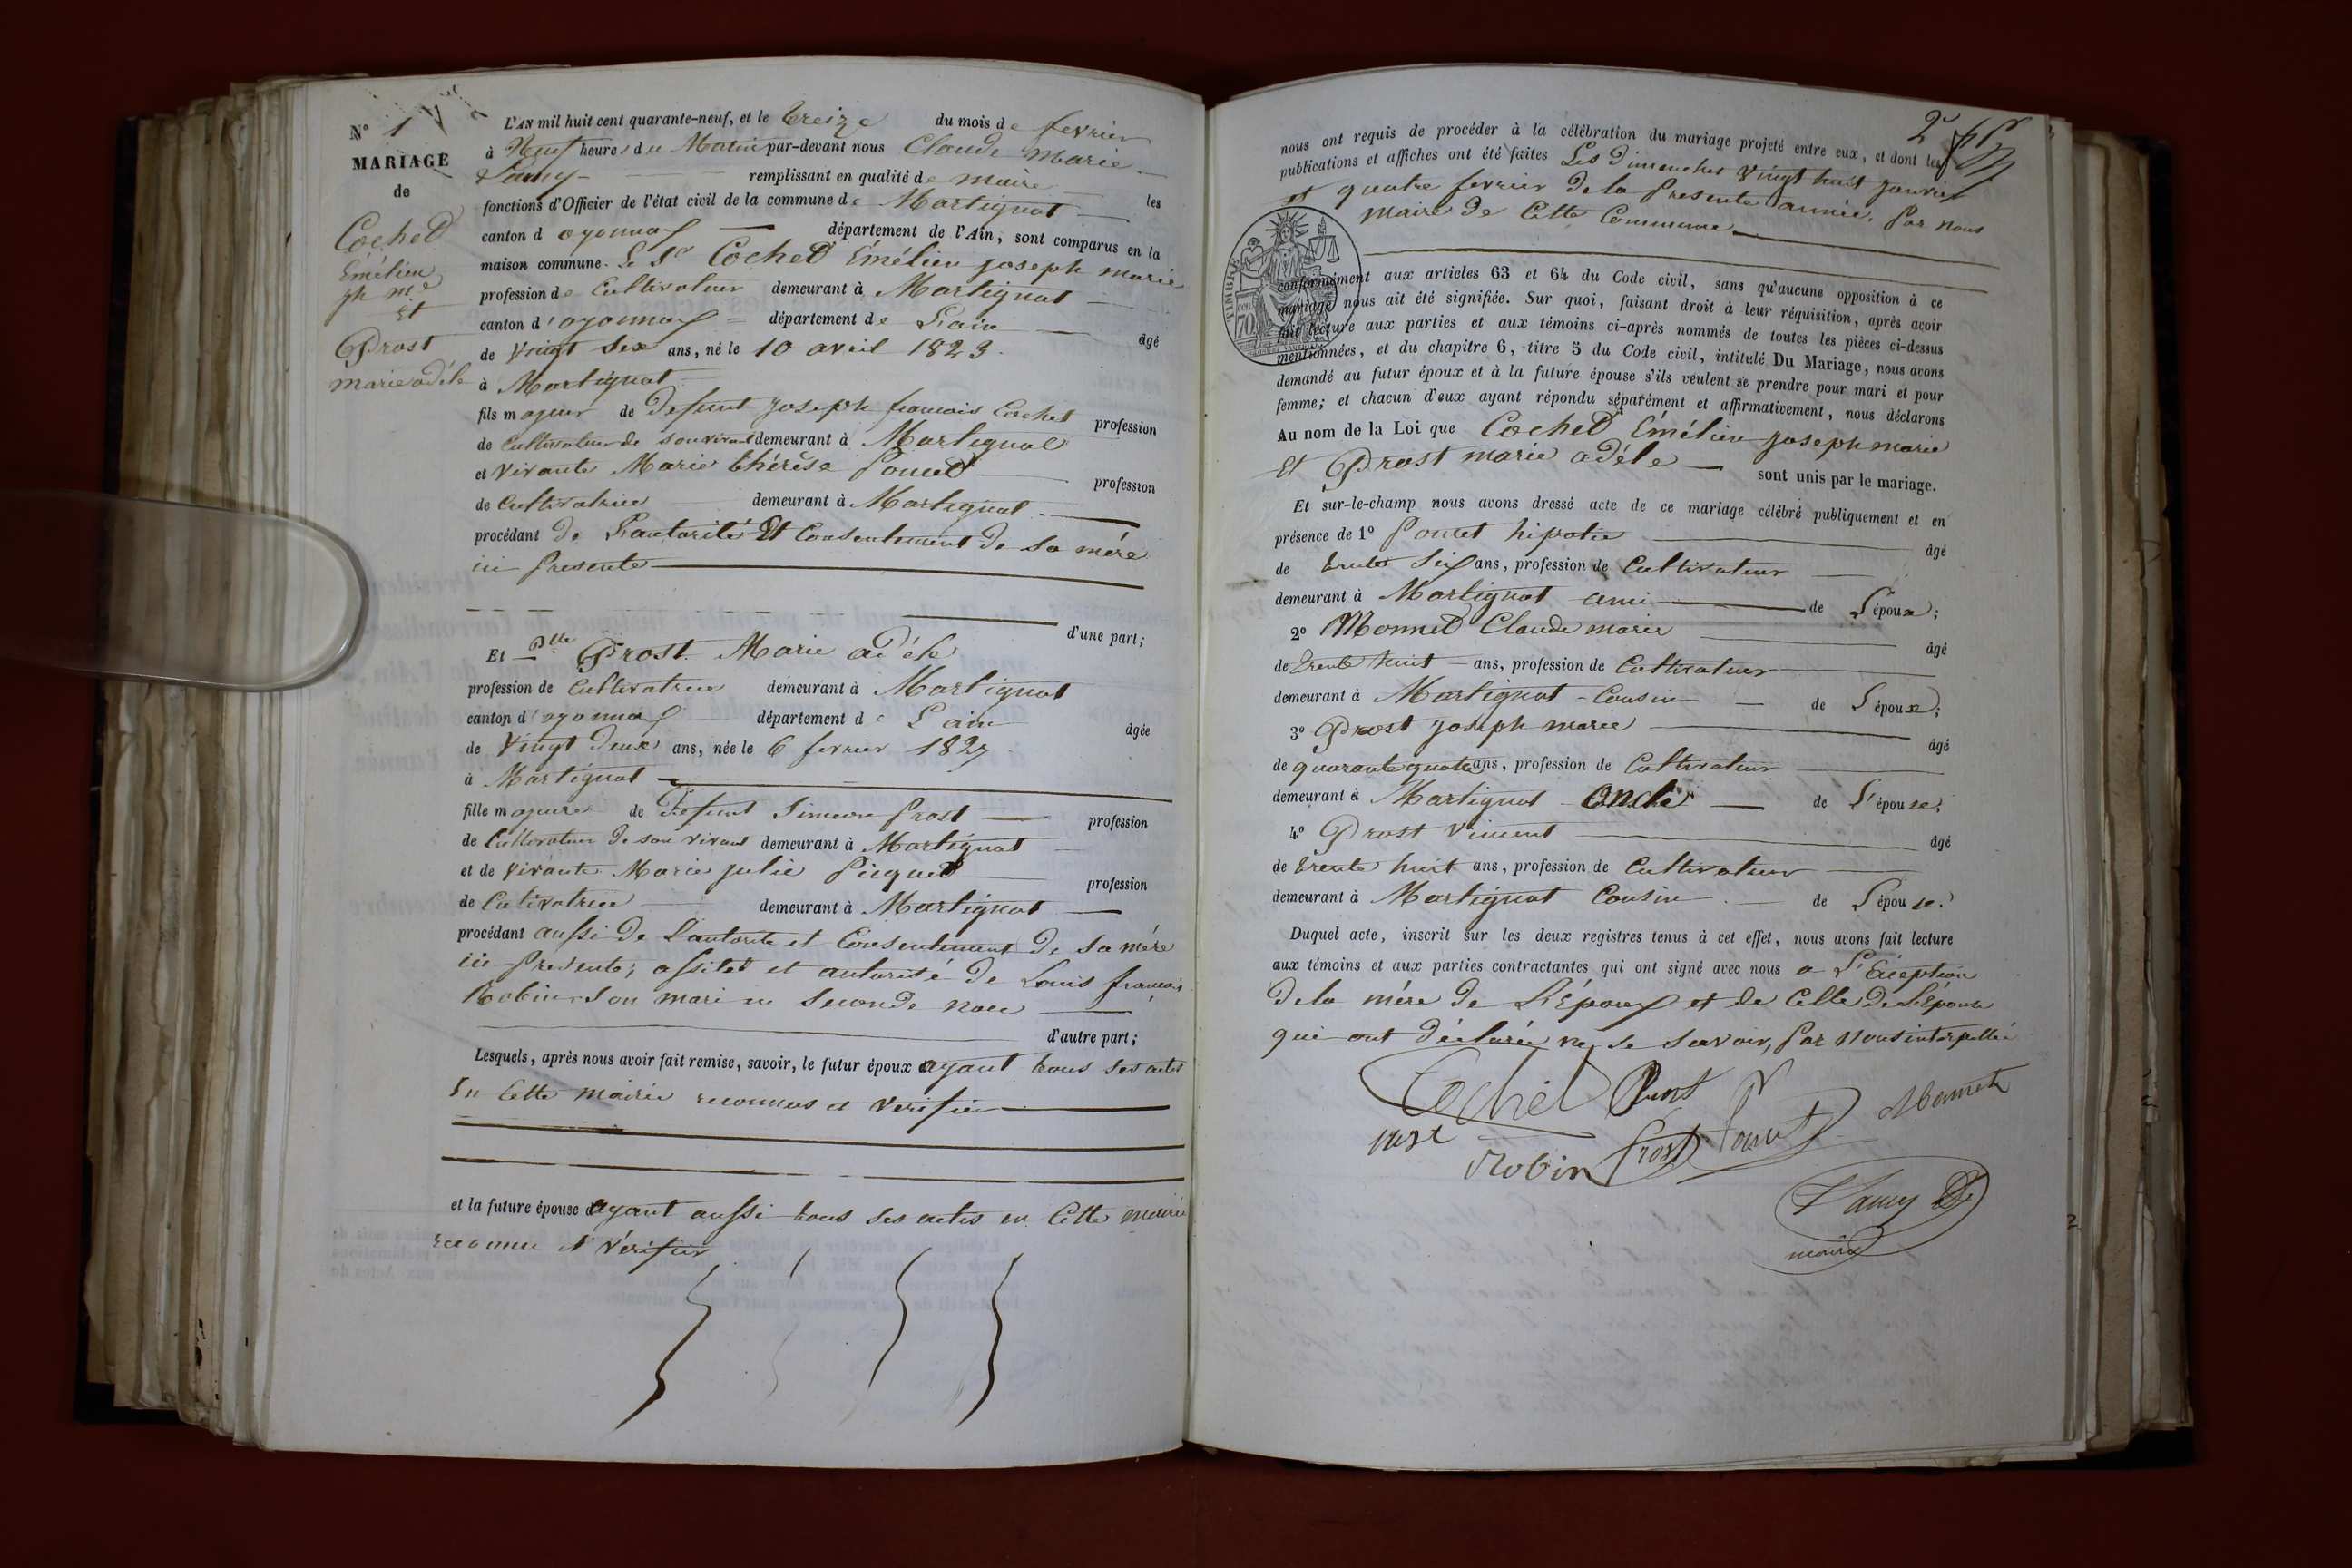 N° 1
MARIAGE
de
Cochet
Émélien
ph mie
et
Prost
marie adéle
L'AN mil huit cent quarante-neuf, et le treize du mois de fevrier
à Neuf heures du Matin par-devant nous Claude Marie
Lamy remplissant en qualité de maire les
fonctions d'Officier de l'état civil de la commune de Martignat
canton d'oyonnax département de l'Ain, sont comparus en la
maison commune. Le Sr Cochet Émélien joseph marie
profession de Cultivateur demeurant à Martignat
canton d'oyonnax département de L'ain âgé
de Vingt Six ans, né le 10 avril 1823.
à Martignat
fils majeur de Defunt joseph francois Cochet profession
de Cultivateur de son vivant demeurant à Martignat
et Vivante Marie thérèse Poncet profession
de Cultivatrice demeurant à Martignat
procédant de L'autorité Et Consentement de Sa mére
ici Presente
d'une part;
Et Dlle Prost Marie adéle
profession de Cultivatrice demeurant à Martignat
canton d'oyonnax département de L'ain âgée
de Vingt Deux ans, née le 6 fevrier 1827
à Martignat
fille majeure de Defunt Simeon Prost profession
de Cultivateur de son vivant demeurant à Martignat
et de Vivante Marie julie Picquet profession
de Cultivatrice demeurant à Martignat
procédant aussi de L'autorité et Consentement de Sa mére
ici Presente; assitet et autorisé de Louis francois
Robin Son mari en Seconde noce
d'autre part;
Lesquels, après nous avoir fait remise, savoir, le futur époux ayant tous ses actes
En Cette mairie reconnus et verifier
et la future épouse d ayant aussi tous ses actes en Cette mairie
reconnu et Vérifier
2e
nous ont requis de procéder à la célébration du mariage projeté entre eux, et dont les
publications et affiches ont été faites Les Dimenches Vingt huit janvier
et quatre fevrier De la Presente année. Par nous
maire de Cette Commune
TIMBRE
70
conformément aux articles 63 et 64 du Code civil, sans qu'aucune opposition à ce
mariage nous ait été signifiée. Sur quoi, faisant droit à leur réquisition, après avoir
fait lecture aux parties et aux témoins ci-après nommés de toutes les pièces ci-dessus
mentionnées, et du chapitre 6, titre 5 du Code civil, intitulé Du Mariage, nous avons
demandé au futur époux et à la future épouse s'ils veulent se prendre pour mari et pour
femme; et chacun d'eux ayant répondu séparément et affirmativement, nous déclarons
Au nom de la Loi que Cochet Émélien joseph marie
Et Prost marie adéle sont unis par le mariage.
Et sur-le-champ nous avons dressé acte de ce mariage célébré publiquement et en
présence de 1° Poncet hipolie âgé
de trente Six ans, profession de Cultivateur
demeurant à Martignat ami de L'époux;
2° Monnet Claude marie âgé
de trente huit ans, profession de Cultivateur
demeurant à Martignat Cousin de L'époux;
3° Prost joseph marie âgé
de quarante quatre ans, profession de Cultivateur
demeurant à Martignat oncle de L'épouse;
4° Prost Vincent âgé
de trente huit ans, profession de Cultivateur
demeurant à Martignat Cousin de L'épouse.
Duquel acte, inscrit sur les deux registres tenus à cet effet, nous avons fait lecture
aux témoins et aux parties contractantes qui ont signé avec nous a L'Exeption
De la mére De L'Époux et de Celle De L'Épouse
qui ont Déclarée ne le Savoir, Par nous interpellée
Cochet Prost
Monnet
Prost
Robin
Lamy
maire
2